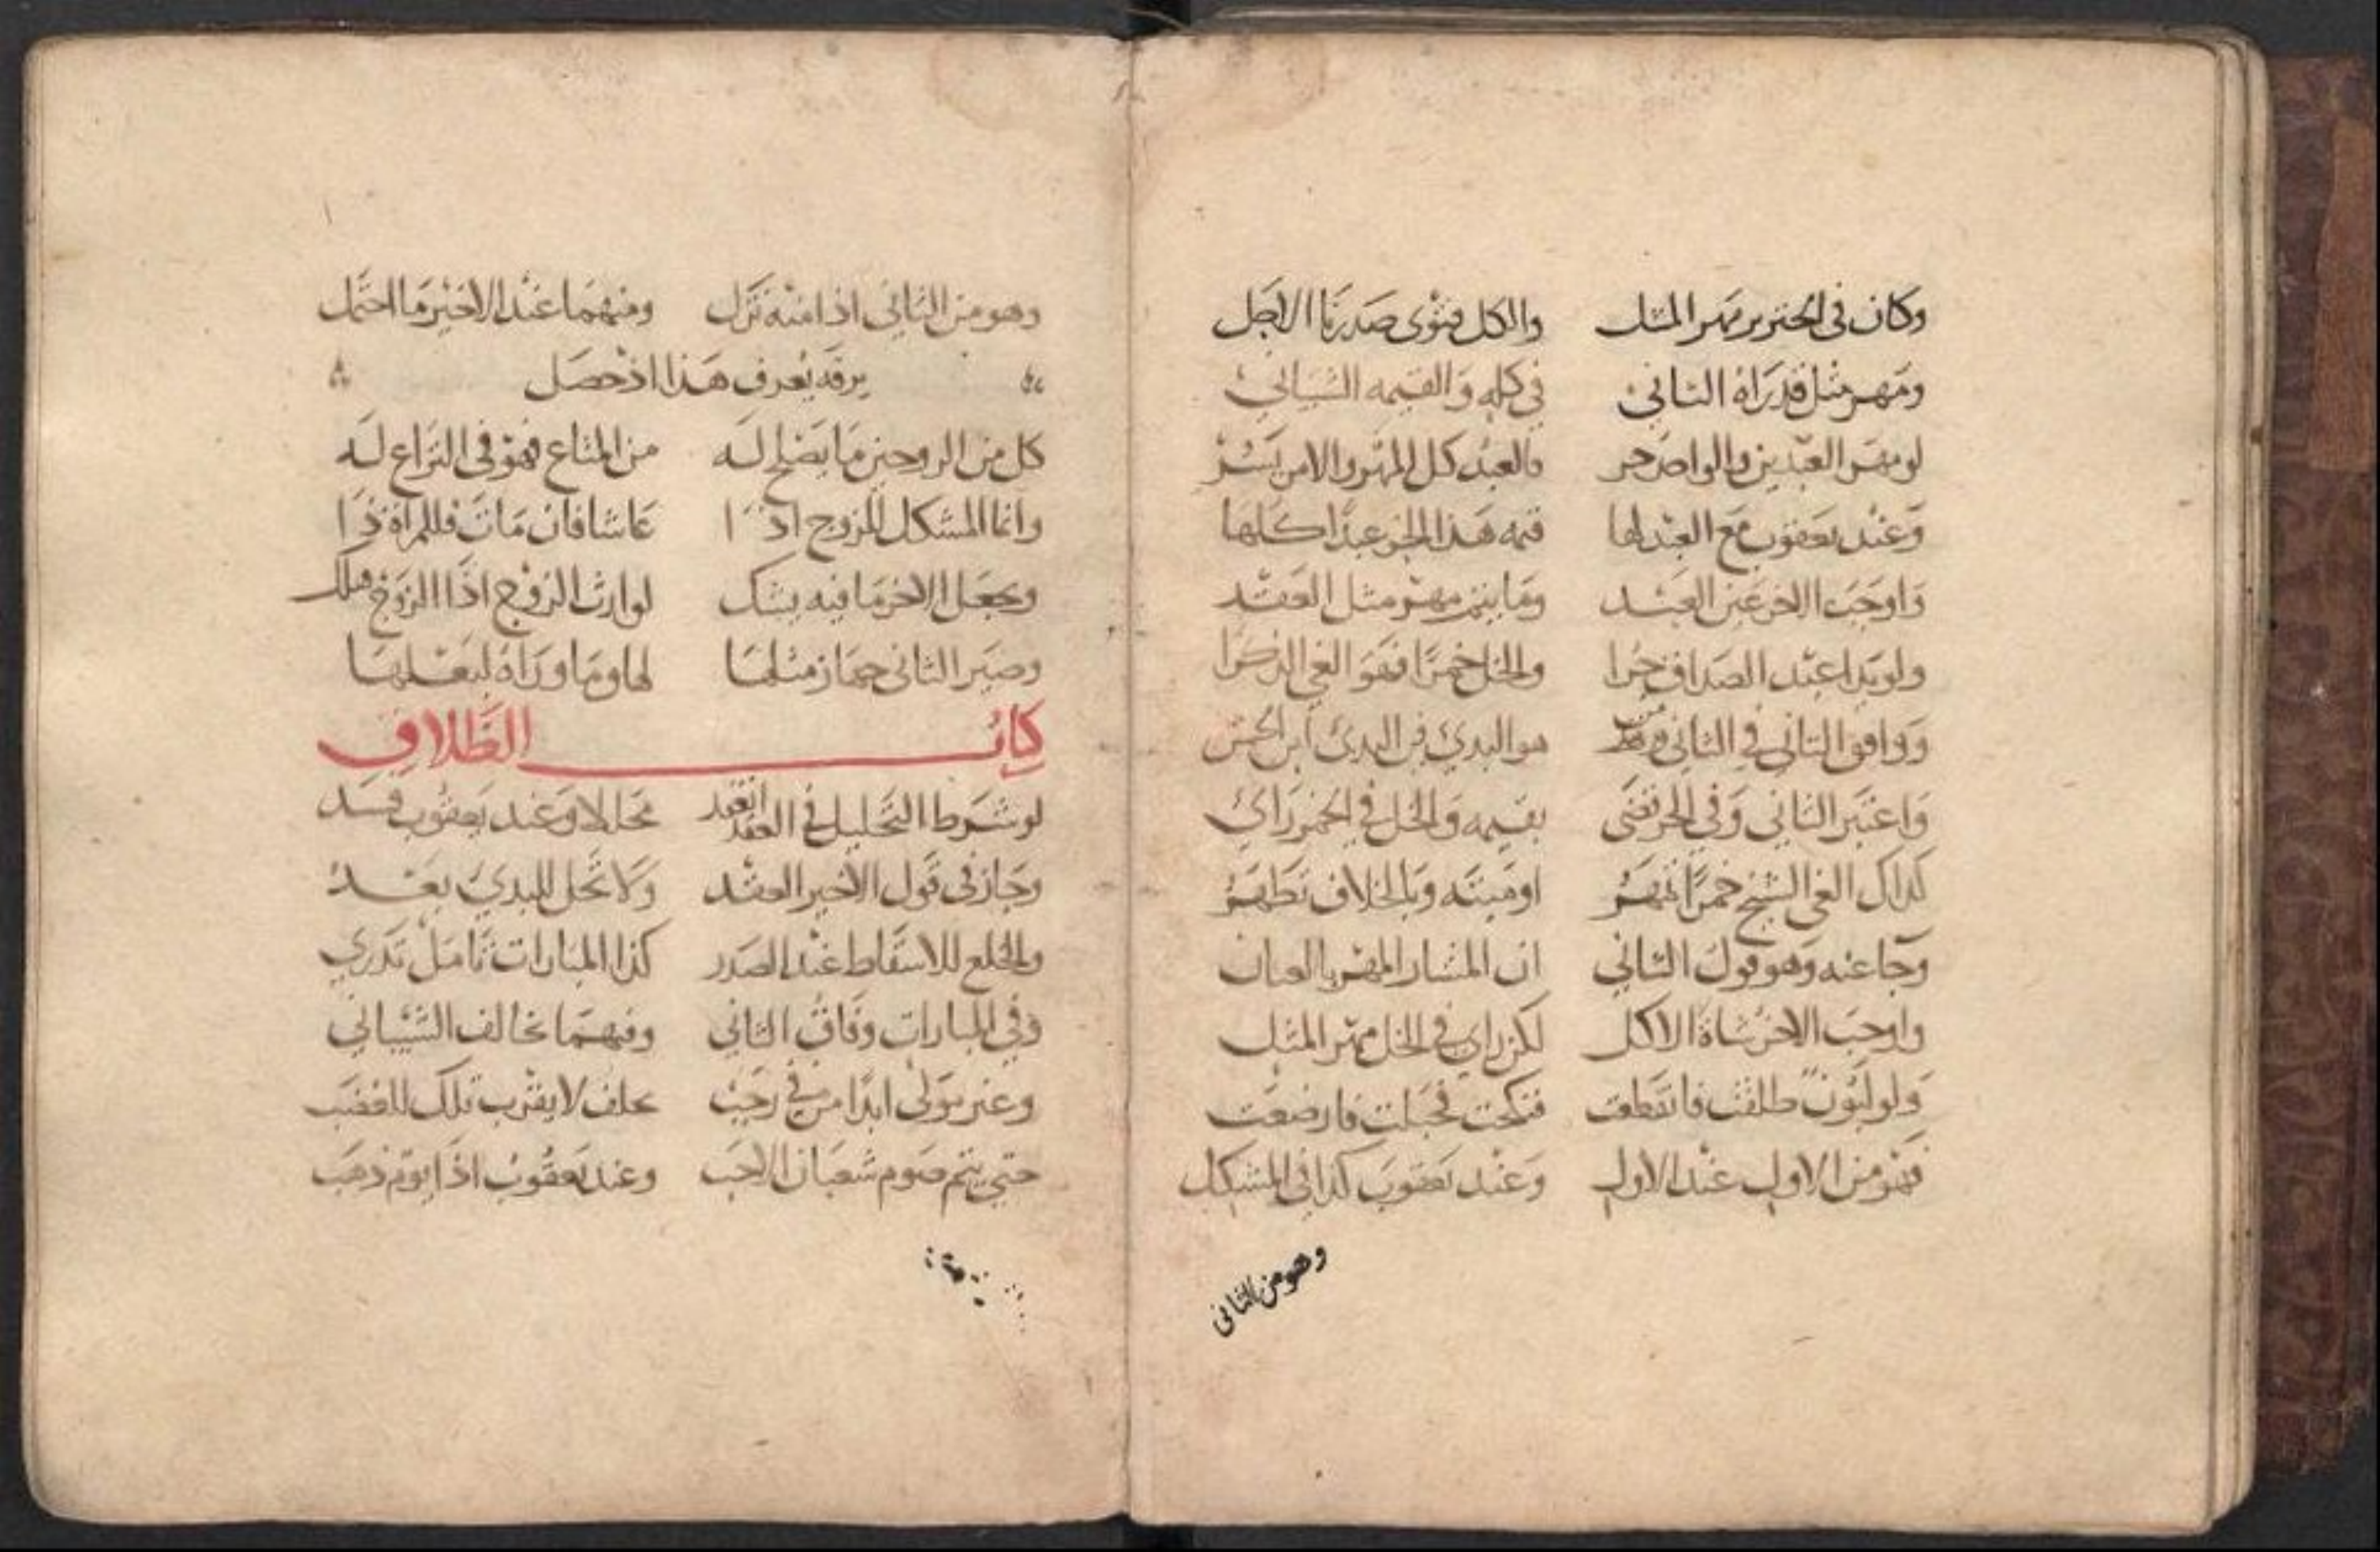 وكان في الخنزير مهر المثل والكل فتوى صدرنا الاجل
ومهر مثل قد راه الثاني في كله والقيمه الشيباني
لو مهر العبدين والواحد حر فالعبد كل المهر والامر يسر
وعند يعقوب مع العبد لها قيمه هذا الحر عبدا كلها
واوجب الاخر عين العبد وما يتم مهر مثل العقد
ولو بدا عبد الصداق حرا والخل خمرا فهو الغى الذكرا
ووافق الثاني في الثاني ومن هو البدي في البدي ابن الحسن
واعتبر الثاني وفي الحر قضى بقيمه والخل في الخمر راى
كذاك الغى الشيخ خمرا تمهر او ميتنه وبالخلاف تطهر
وجا عنه وهو قول الثاني ان المشار المهر بالعيان
واوجب الاخر شاة الاكل لكن راى في الخل مهر المثل
ولو لبون طلقت فانقطعت فنكحت فحبلت فارضعت
فهو من الاول عند الاول وعند يعقوب كذا في المشكل
وهو من الثاني
وهو من الثاني اذا منه نزل ومنهما عند الاخير ما احتمل
برقه يعرف هذا اذ حصل
كل من الزوجين ما يصلح له من المتاع فهو في النزاع له
وانما المشكل للزوج اذا عاشا فان مات فللمراة ذا
ويجعل الاخر ما فيه يشك لوارث الزوج اذا الزوج هلك
وصير الثاني جهاز مثلها لها وما وراه لبعلها
كتاب الطلاق
لو شرط التحليل في العقد انعقد محللا وعند يعقوب فسد
وجاز في قول الاخير العقد ولا تحل للبدي بعد
والخلع للاسقاط عند الصدر كذا المبارات تامل تدري
وفي المبارات وفاق الثاني وفيهما يخالف الشيباني
وعنه يولى ابدا من في رجب حلف لا يقرب تلك للغضب
حتى يتم صوم شعبان الاحب وعند يعقوب اذا يوم ذهب